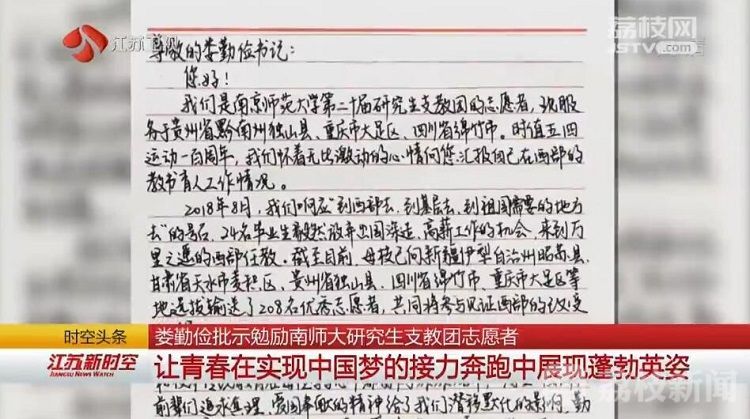 江苏卫视
荔枝网
JSTV.COM
尊敬的娄勤俭书记：
您好！
我们是南京师范大学第二十届研究生支教团的志愿者，现服
务于贵州省黔南州独山县、重庆市大足区、四川省绵竹市。时值五四
运动一百周年，我们怀着无比激动的心情向您汇报自己在西部的
教书育人工作情况。
2018年8月，我们响应"到西部去，到基层去，到祖国需要的地方
去"的号召，24名毕业生毅然放弃出国深造、高薪工作的机会，来到万
里之遥的西部任教。截至目前，母校已向新疆伊犁自治州昭苏县、
甘肃省天水市麦积区、贵州省独山县、四川省绵竹市、重庆市大足区等
地选拔输送了208名优秀志愿者，共同
时空头条
娄勤俭批示勉励南师大研究生支教团志愿者
江苏新时空
JIANGSU NEWS WATCH
让青春在实现中国梦的接力奔跑中展现蓬勃英姿
荔枝新闻
前辈们追求真理、爱国奉献的精神给了我们潜移默化的影响。勤